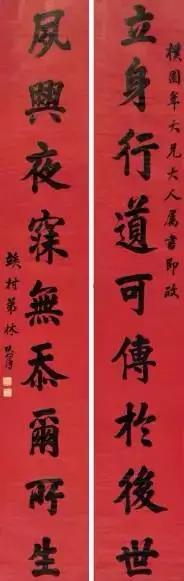 樸園年大兄大人属書即政
立身行道可傳於後世
夙興夜寐無忝爾所生
竢村弟林則徐